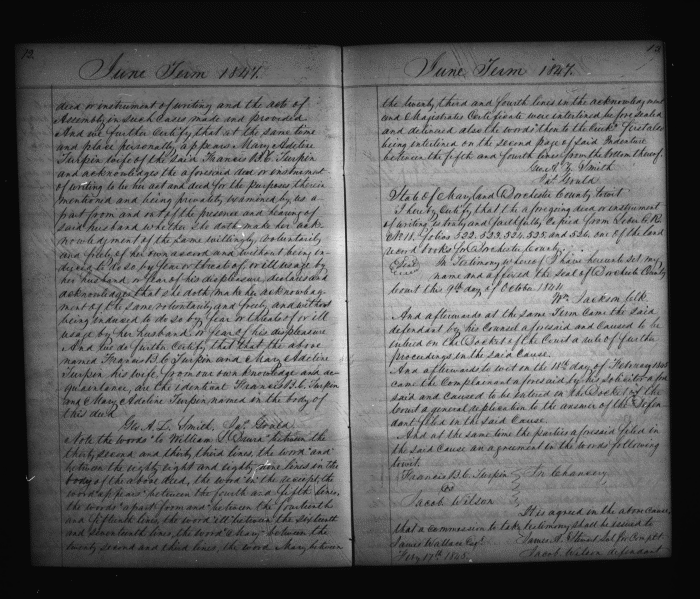 12.
June Term 1847.
deed or instrument of writing and the acts of
Assembly in such cases made and provided
And we further Certify that at the same time
and place personally appears Mary Adeline
Turpin wife of the said Francis B. C. Turpin
and acknowledges the aforesaid deed or instrument
of writing to be her act and deed for the purposes therein
mentioned and being privately examined by us a-
part from and out of the presence and hearing of
said husband whether she doth make her ack-
nowledgment of the same willingly, voluntarily
and freely of her own accord and without being in-
duced to do so by fear or threats of or ill usage by
her husband or fear of his displeasure, declares and
acknowledges that she doth make her acknowledg-
ment of the same voluntarily and freely and without
being induced to do so by fear or threats of or ill
usage by her husband or fear of his displeasure
And we do further Certify that that the above
named Francis B. C. Turpin and Mary Adeline
Turpin his wife, from our own knowledge and ac-
quaintance, are the identical Francis B. C. Turpin
and Mary Adeline Turpin named in the body of
this deed
Geo. A. Z. Smith. Jas. Gould.
Note the words "to William" between the
thirty second and thirty third lines, the word "and"
between the eighty eight and eighty nine lines in the
body of the above deed, the word in the receipt, the
word "appears" between the fourth and fifth lines,
the words "apart from and" between the fourteenth
and fifteenth lines, the word "ill" between the sixteenth
and seventeenth lines, the words between the
twenty second and third lines, the word Mary between
June Term 1847.
the twenty third and fourth lines in the acknowledgment
and Magistrates Certificate were interlined before sealed
and delivered also the word "then to the" first also
being interlined on the second page of said Indenture
between the fifth and fourth lines from the bottom thereof.
Geo. A. Z. Smith
Jas. Gould
State of Maryland Dorchester County towit
I hereby Certify that the aforegoing deed or instrument
of writing is truly and faithfully Copied from Liber
No. 18, folios 522, 523, 524, 525, and 526, one of the land
record books for Dorchester County.
In Testimony whereof I have hereunto set my
name and affixed the seal of Dorchester County
Court this 9th day of October 1844
Wm. Jackson Clk.
And afterwards at the same Term came the said
defendant by his Counsel aforesaid and Caused to be
entered on the Docket of the Court a rule of further
proceedings in the said Cause.
And afterwards towit on the 18th day of February 1848
came the Complainant aforesaid by his Solicitor afore
said and caused to be entered in the Docket of the
Court a general replication to the answer of the Defen
dant filed in the said Cause.
And at the same time the parties aforesaid filed in
the said Cause an agreement in the words following
towit.
Francis B. C. Turpin In Chancery
vs
Jacob Wilson
It is agreed in the above Cause,
that a commission to take testimony shall be issued to
James Wallace Esqr. James A. Stewart Sol for Complt.
Feby 17th 1848. Jacob Wilson defendant